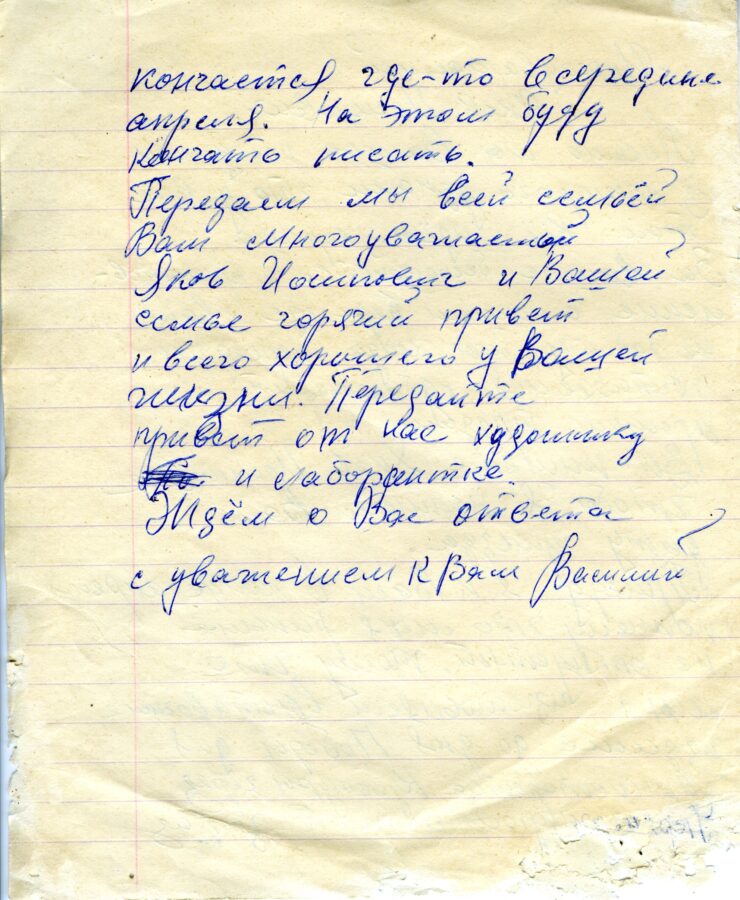 кончается где-то в середине
апреля. На этом буду
кончать писать.
Передаем мы всей семьёй
Вам многоуважаемый
Яков Иосипович и Вашей
семье горячий привет
и всего хорошего у Вашей
жизни. Передайте
привет от нас художнику
и лаборантке.
Ждём о Вас ответа
с уважением к Вам Василий